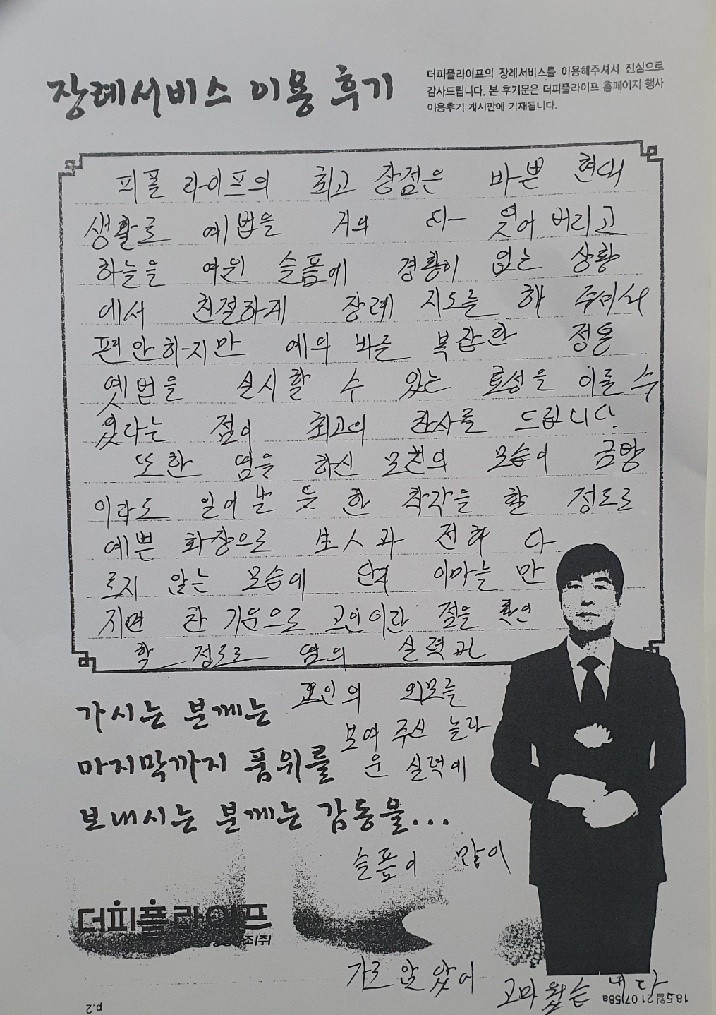 장례서비스 이용 후기
더피플라이프의 장례서비스를 이용해주셔서 진심으로
감사드립니다. 본 후기문은 더피플라이프 홈페이지 행사
이용후기 게시판에 기재됩니다.
피플 라이프의 최고 장점은 바쁜 현대
생활로 예법을 거의 다 잊어 버리고
하늘을 여읜 슬픔에 경황이 없는 상황
에서 친절하게 장례 지도를 해 주셔서
편안하지만 예의 바른 복잡한
옛법을 실시할 수 있는 이룰 수
있다는 점이 최고의 찬사를 드립니다.
또한 염을 하신 모친의 모습이 금방
이라도 일어날 듯 한 착각을 할 정도로
예쁜 화장으로 生人과 전혀 다
르지 않는 모습에 단지 이마를 만
지면 찬 기운으로 고인이란 점을 확인
할 정도로 염의 실력
고인의 외모를
보여 주신 놀라
운 실력에
가시는 분께는
마지막까지 품위를
보내시는 분께는 감동을...
슬픔이 많이
더피플라이프
가라 앉았어
고마웠습니다
p.2